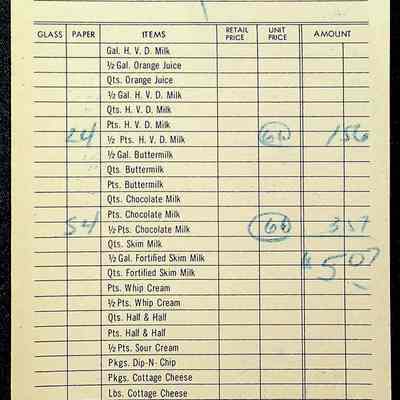 GLASS PAPER ITEMS RETAIL PRICE UNIT PRICE AMOUNT
Gal. H. V. D. Milk
½ Gal. Orange Juice
Qts. Orange Juice
½ Gal. H. V. D. Milk
Qts. H. V. D. Milk
Pts. H. V. D. Milk
24 ½ Pts. H. V. D. Milk 156
½ Gal. Buttermilk
Qts. Buttermilk
Pts. Buttermilk
Qts. Chocolate Milk
Pts. Chocolate Milk
54 ½ Pts. Chocolate Milk
Qts. Skim Milk
½ Gal. Fortified Skim Milk 507
Qts. Fortified Skim Milk
Pts. Whip Cream
½ Pts. Whip Cream
Qts. Half & Half
Pts. Half & Half
½ Pts. Sour Cream
Pkgs. Dip-N-Chip
Pkgs. Cottage Cheese
Lbs. Cottage Cheese